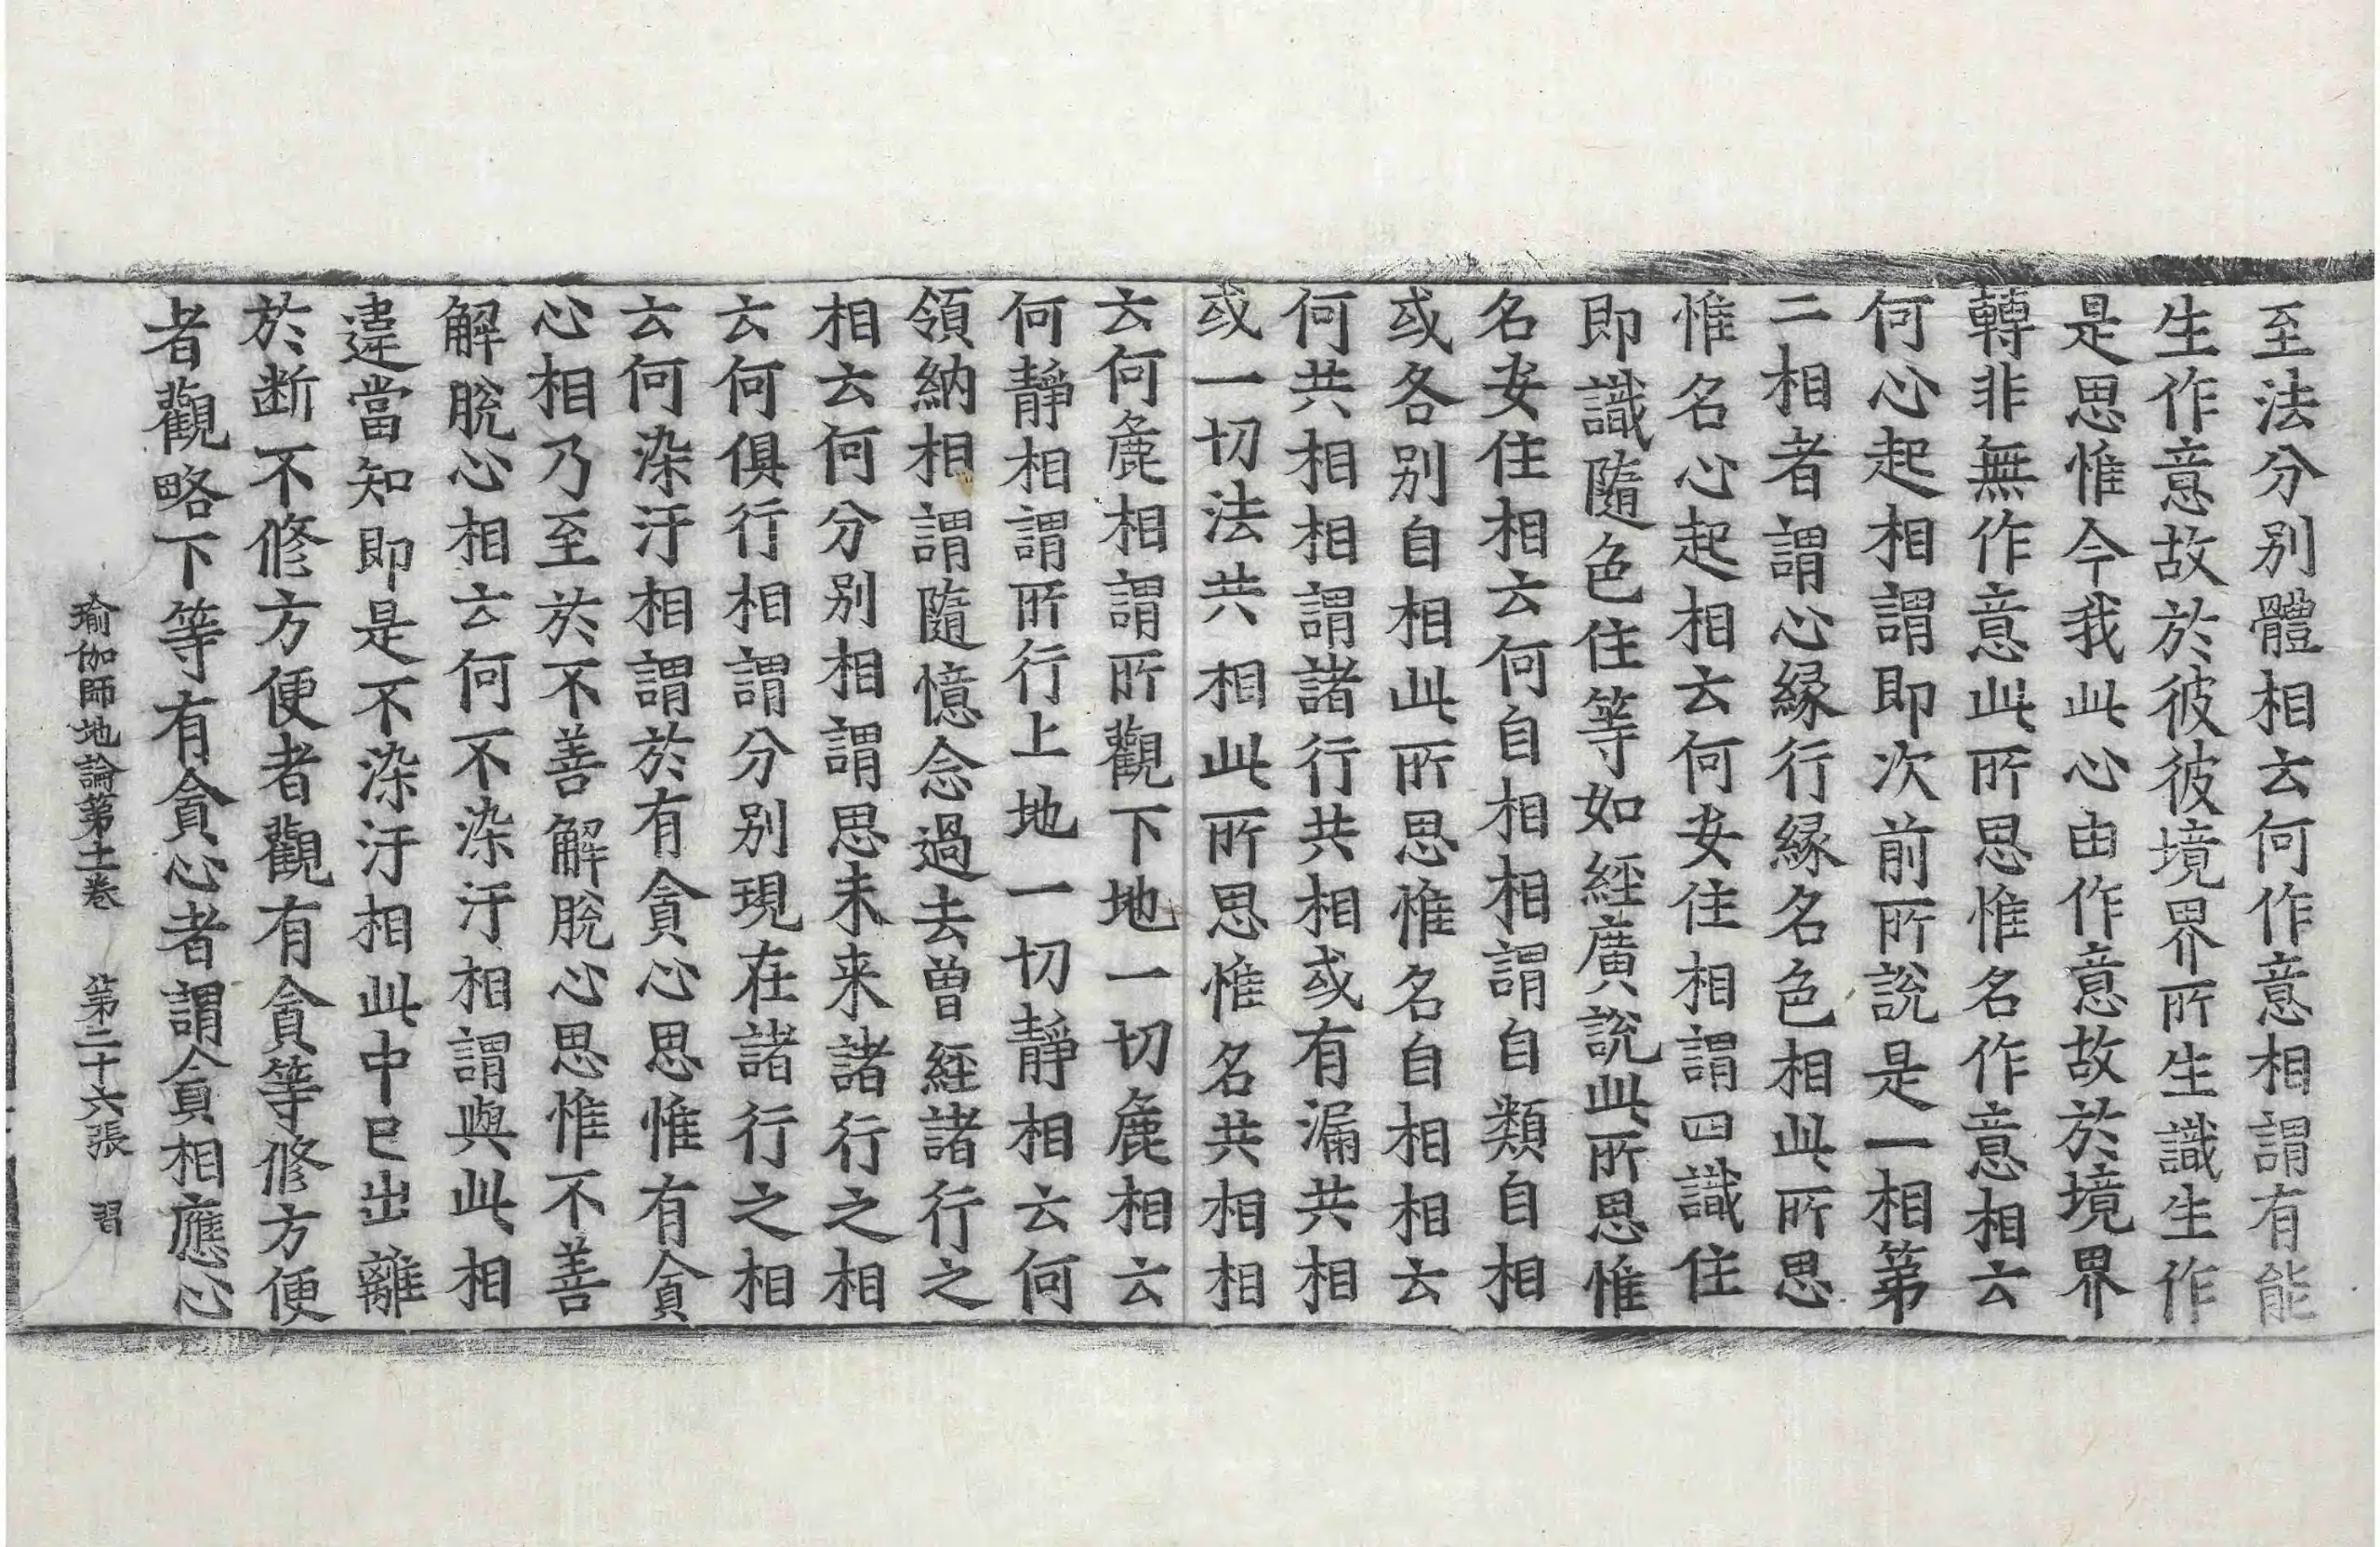 至法分别體相云何作意相謂有能
生作意故於彼彼境界所生識生作
是思惟今我此心由作意故於境界
轉非無作意此所思惟名作意相云
何心起相謂即次前所說是一相第
二相者謂心縁行縁名色相此所思
惟名心起相云何安住相謂四識住
即識隨色住等如經廣說此所思惟
名安住相云何自相相謂自類自相
或各别自相此所思惟名自相相云
何共相相謂諸行共相或有漏共相
或一切法共相此所思惟名共相相
云何麁相謂所觀下地一切麁相云
何靜相謂所行上地一切靜相云何
領納相謂隨憶念過去曾經諸行之
相云何分别相謂思未来諸行之相
云何俱行相謂分别現在諸行之相
云何染汙相謂於有貪心思惟有貪
心相乃至於不善解脫心思惟不善
解脫心相云何不染汙相謂與此相
違當知即是不染汙相此中已出離
於断不修方便者觀有貪等修方便
者觀略下等有貪心者謂貪相應心
瑜伽師地論第十一卷 第二十六張 習